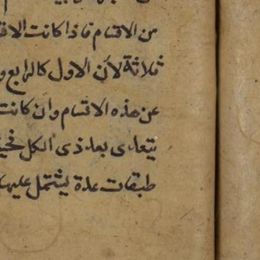 من الاقسام فاذا كانت الاقـ
ثلاثة لأن الاول كالرابع و
عن هذه الاقسام وان كانت
بتعدى بعد ذى الكل
طبقات عدة يشتمل عليها